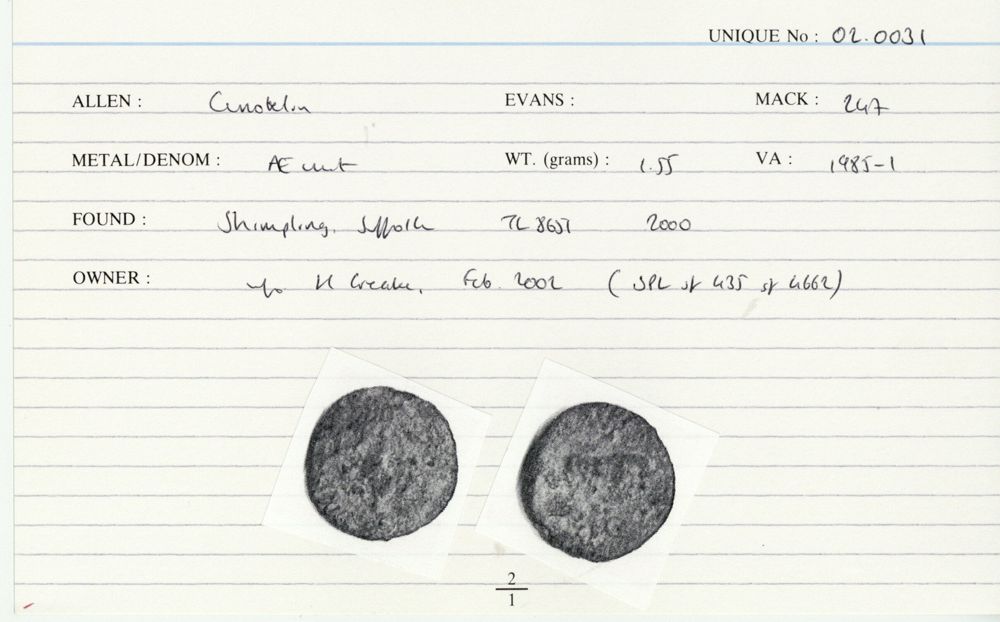 UNIQUE No : 02.0031
ALLEN : Cunobelin EVANS : MACK : 247
METAL/DENOM : Æ unit WT. (grams) : 1.55 VA : 1985-1
FOUND : Shimpling, Suffolk TL 8651 2000
OWNER : Feb. 2002 (SPL sf 435 sf 4662)
2
1